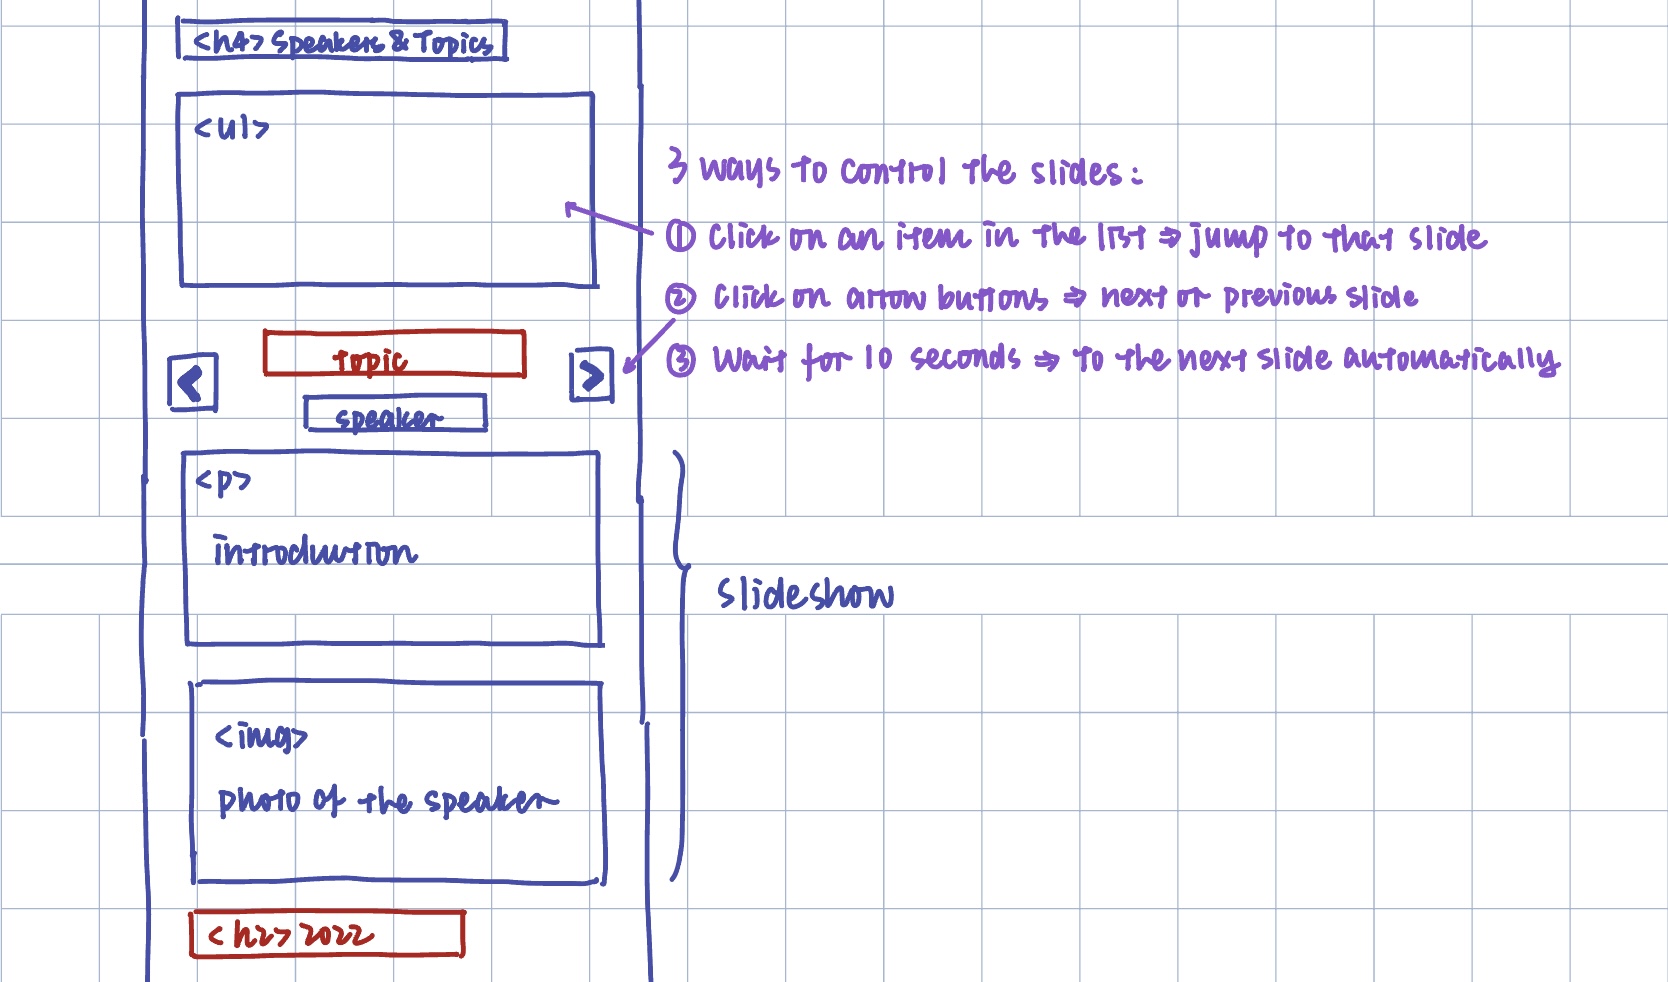 <h4> Speakers & Topics
<ul>
3 ways to control the slides:
① Click on an item in the list ⇒ jump to that slide
② Click on arrow buttons ⇒ next or previous slide
③ Wait for 10 seconds ⇒ to the next slide automatically
<
topic
>
speaker
<p>
introduction
slideshow
<img>
photo of the speaker
<h2> 2022